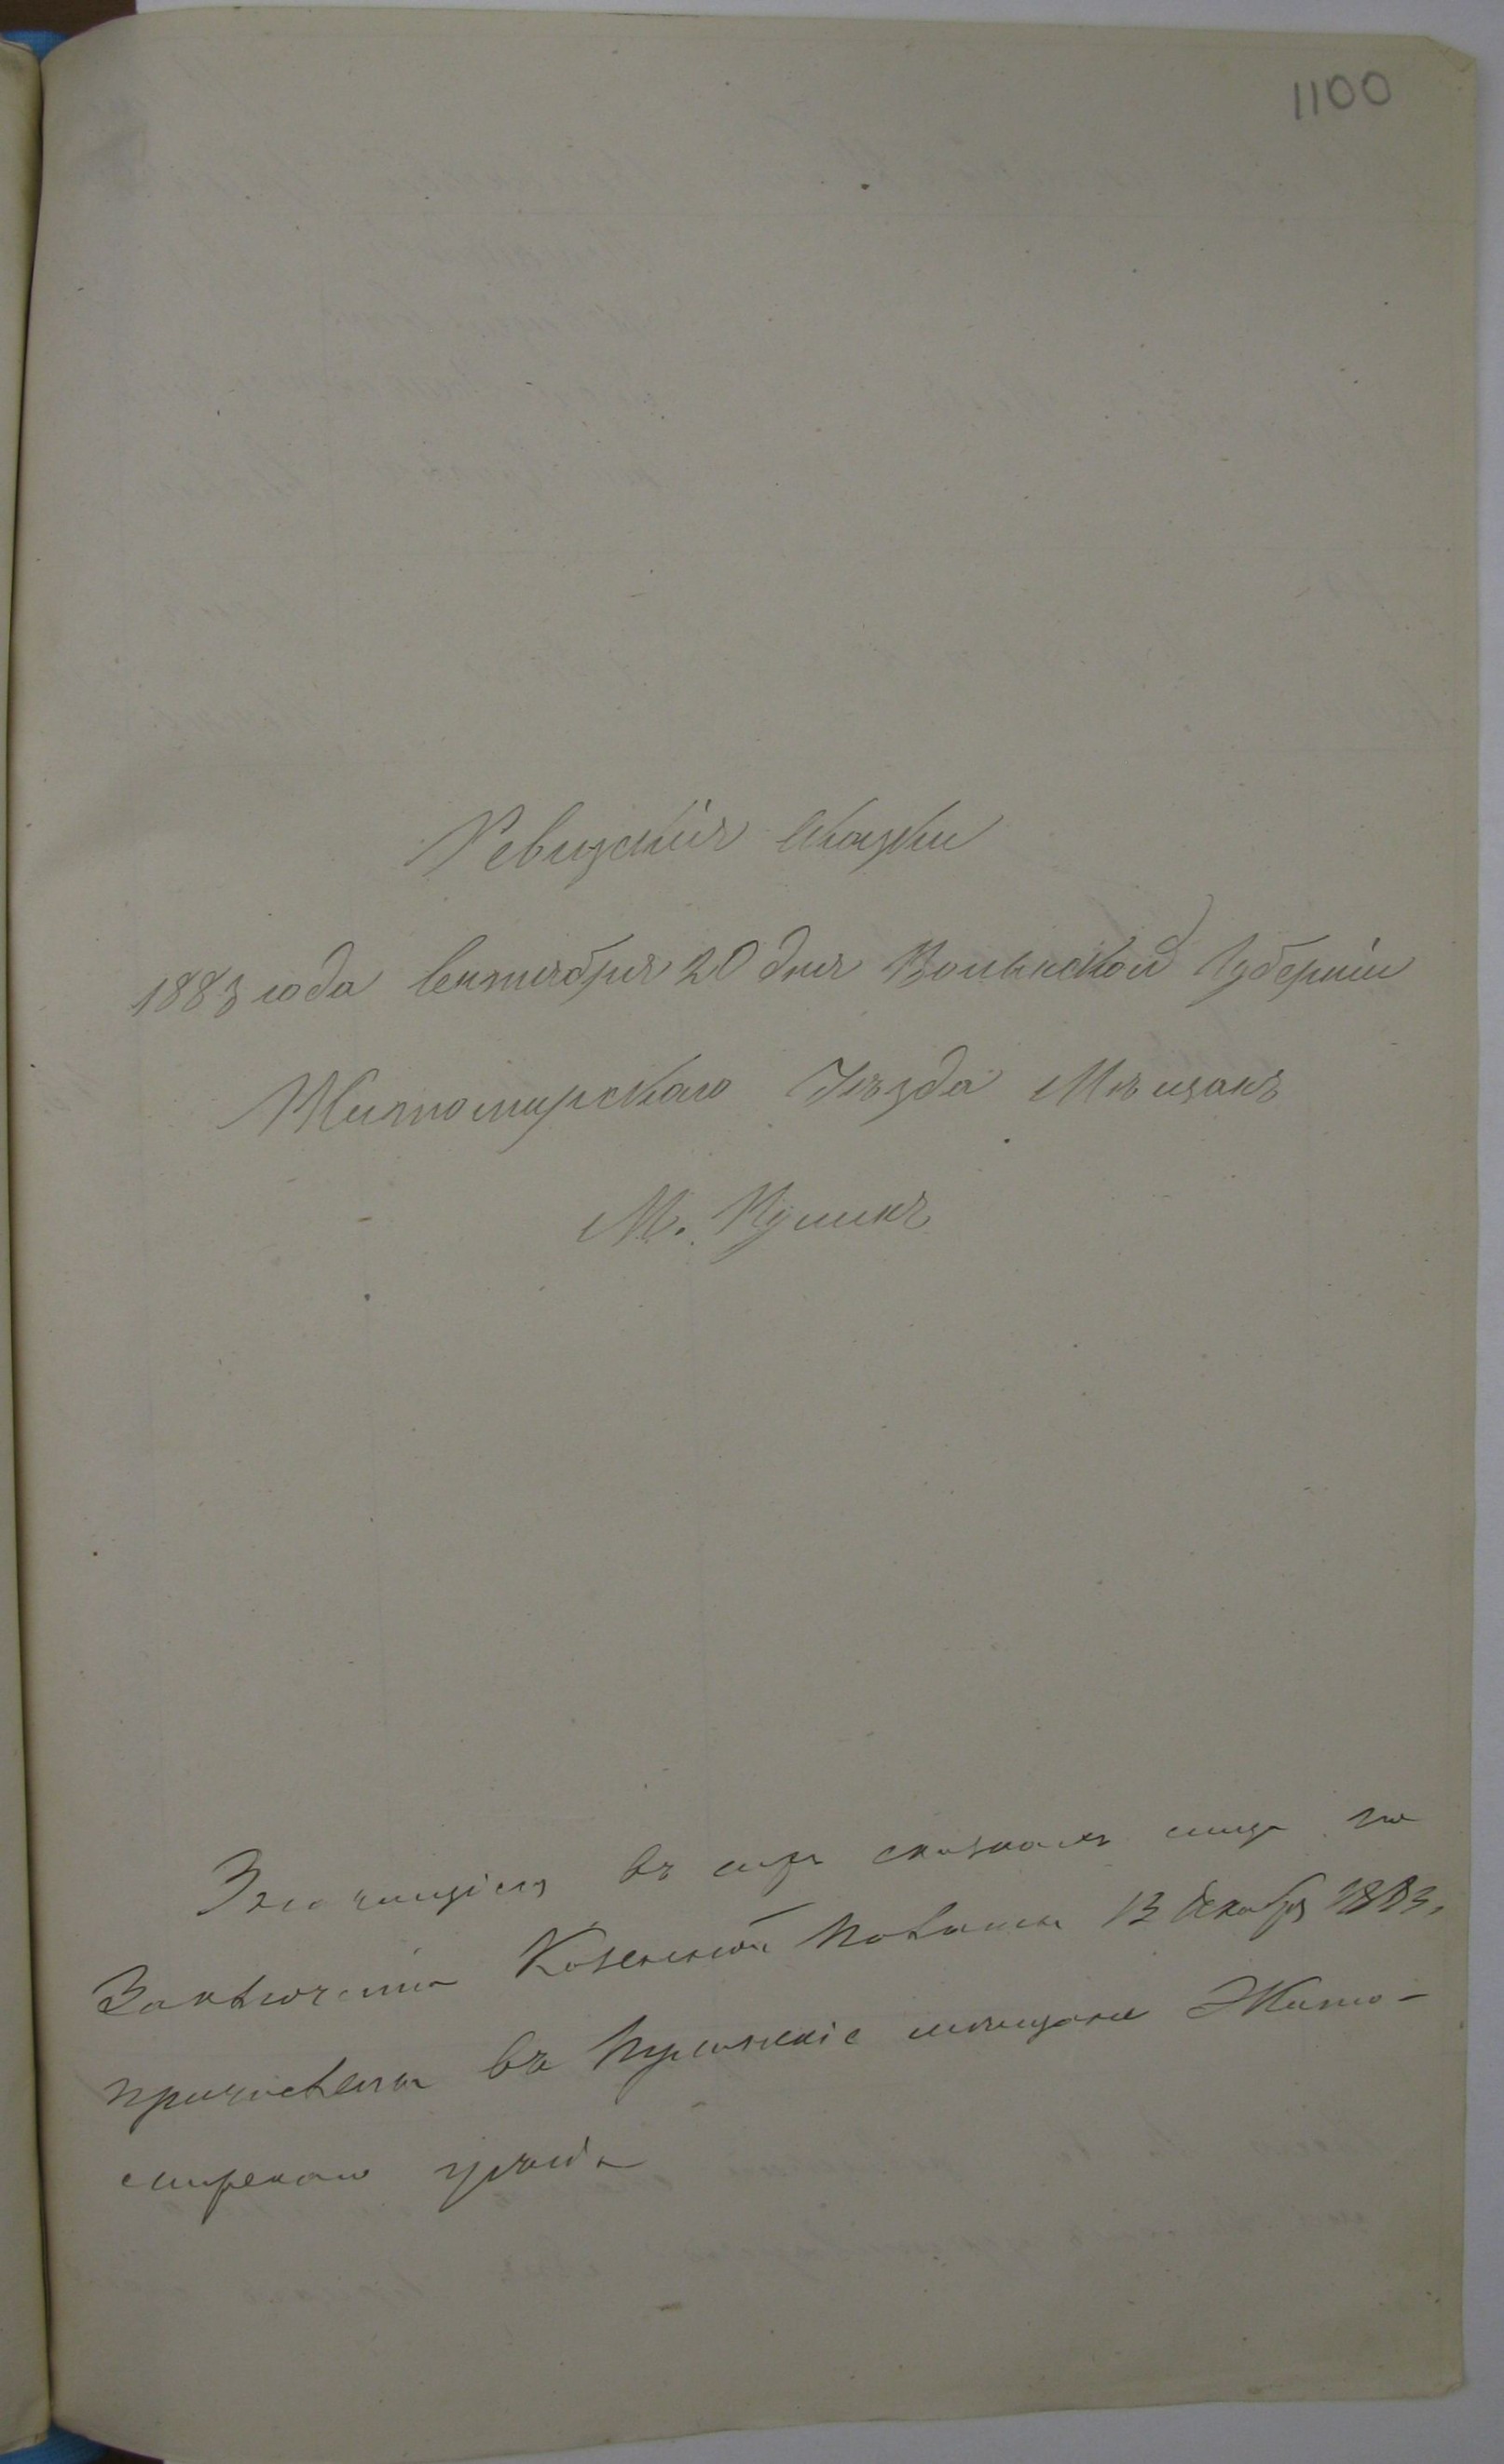 1100
Ревизскія сказки
1883 года Сентября 20 дня Волынской Губерніи
Житомирскаго Уѣзда Мѣщанъ
М. Пулинъ
Значущіеся въ сихъ сказкахъ лица по
Заключенію Казенной Палаты 13 декабря 1883,
причислены въ Пулинскіе мѣщане Жито-
мирскаго уѣзда